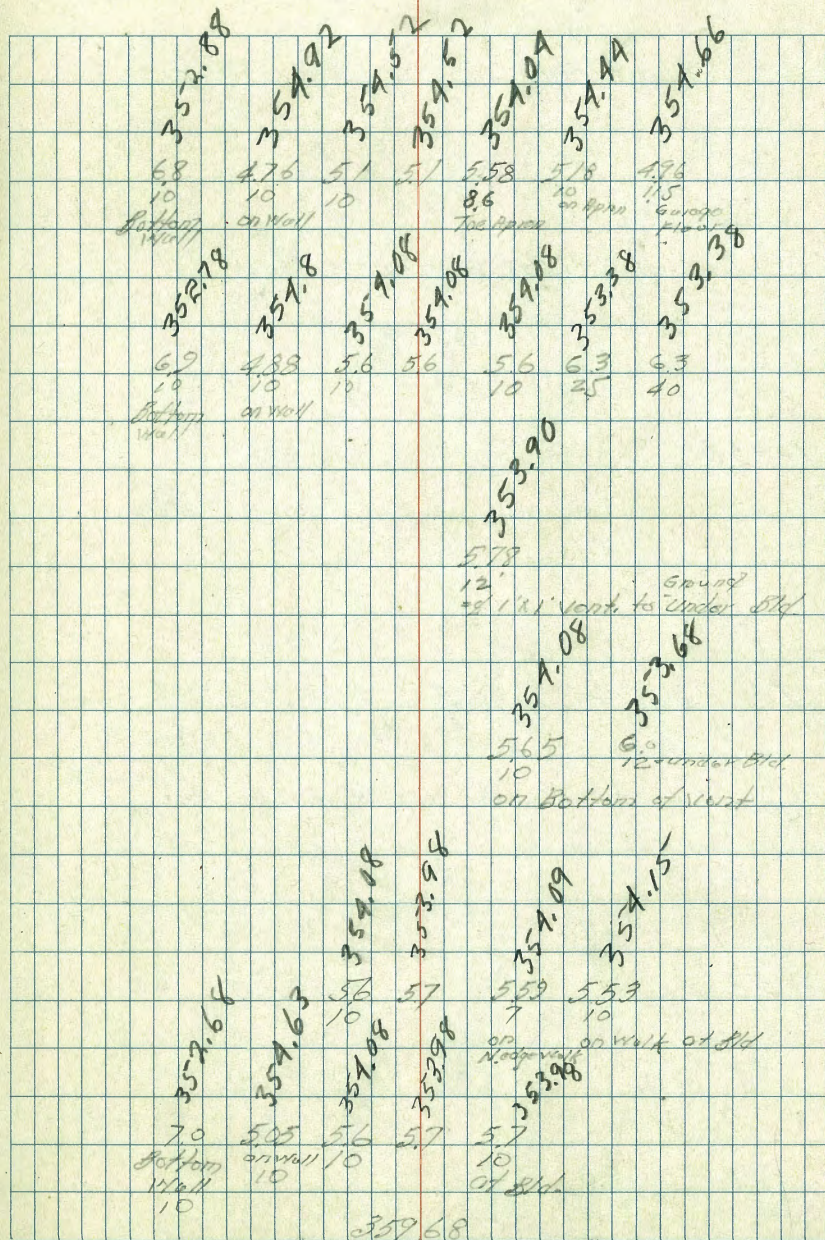 352.88 354.92 354.52 354.52 354.04 354.44 354.66
6.8 4.76 5.1 5.1 5.58 5.18 4.96
10 10 10 8.6 10 11.5
Bottom Wall on Wall Toe Apron on Apron Garage Floor
352.78 354.8 354.08 354.08 354.08 353.38 353.38
6.9 4.88 5.6 5.6 5.6 6.3 6.3
10 10 10 10 25 40
Bottom Wall on Wall
353.90
5.78
12 Ground
1'x1' vent. to under Bld.
354.08 353.68
5.65 6.0
10 12 under Bld.
on Bottom of vent
354.08 353.98 354.09 354.15
5.6 5.7 5.59 5.53
10 7 10
on N.edge walk on walk at Bld
352.68 354.63 354.08 353.98 353.98
7.0 5.05 5.6 5.7 5.7
Bottom Wall on wall 10 10
10 10 at Bld.
359.68